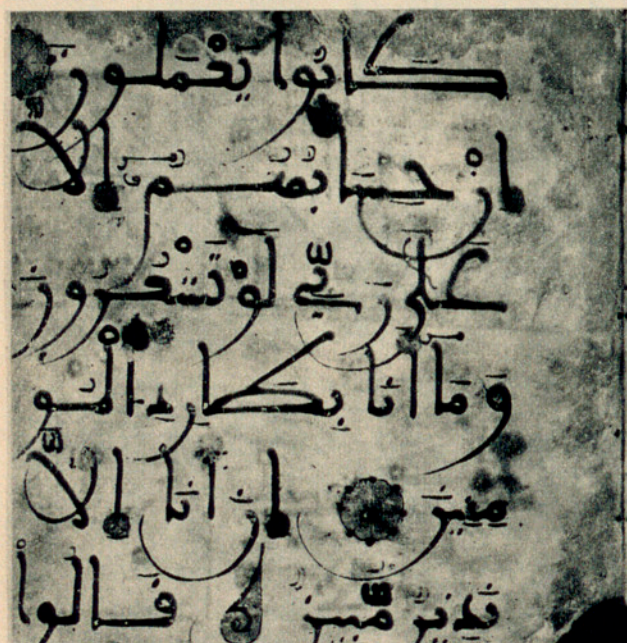 كَانُوا يَعْمَلُونَ
إِنْ حِسَابُهُمْ إِلَّا
عَلَىٰ رَبِّي لَوْ تَشْعُرُونَ
وَمَا أَنَا بِطَارِدِ الْمُو
مِنِينَ إِنْ أَنَا إِلَّا
نَذِيرٌ مُّبِينٌ قَالُوا